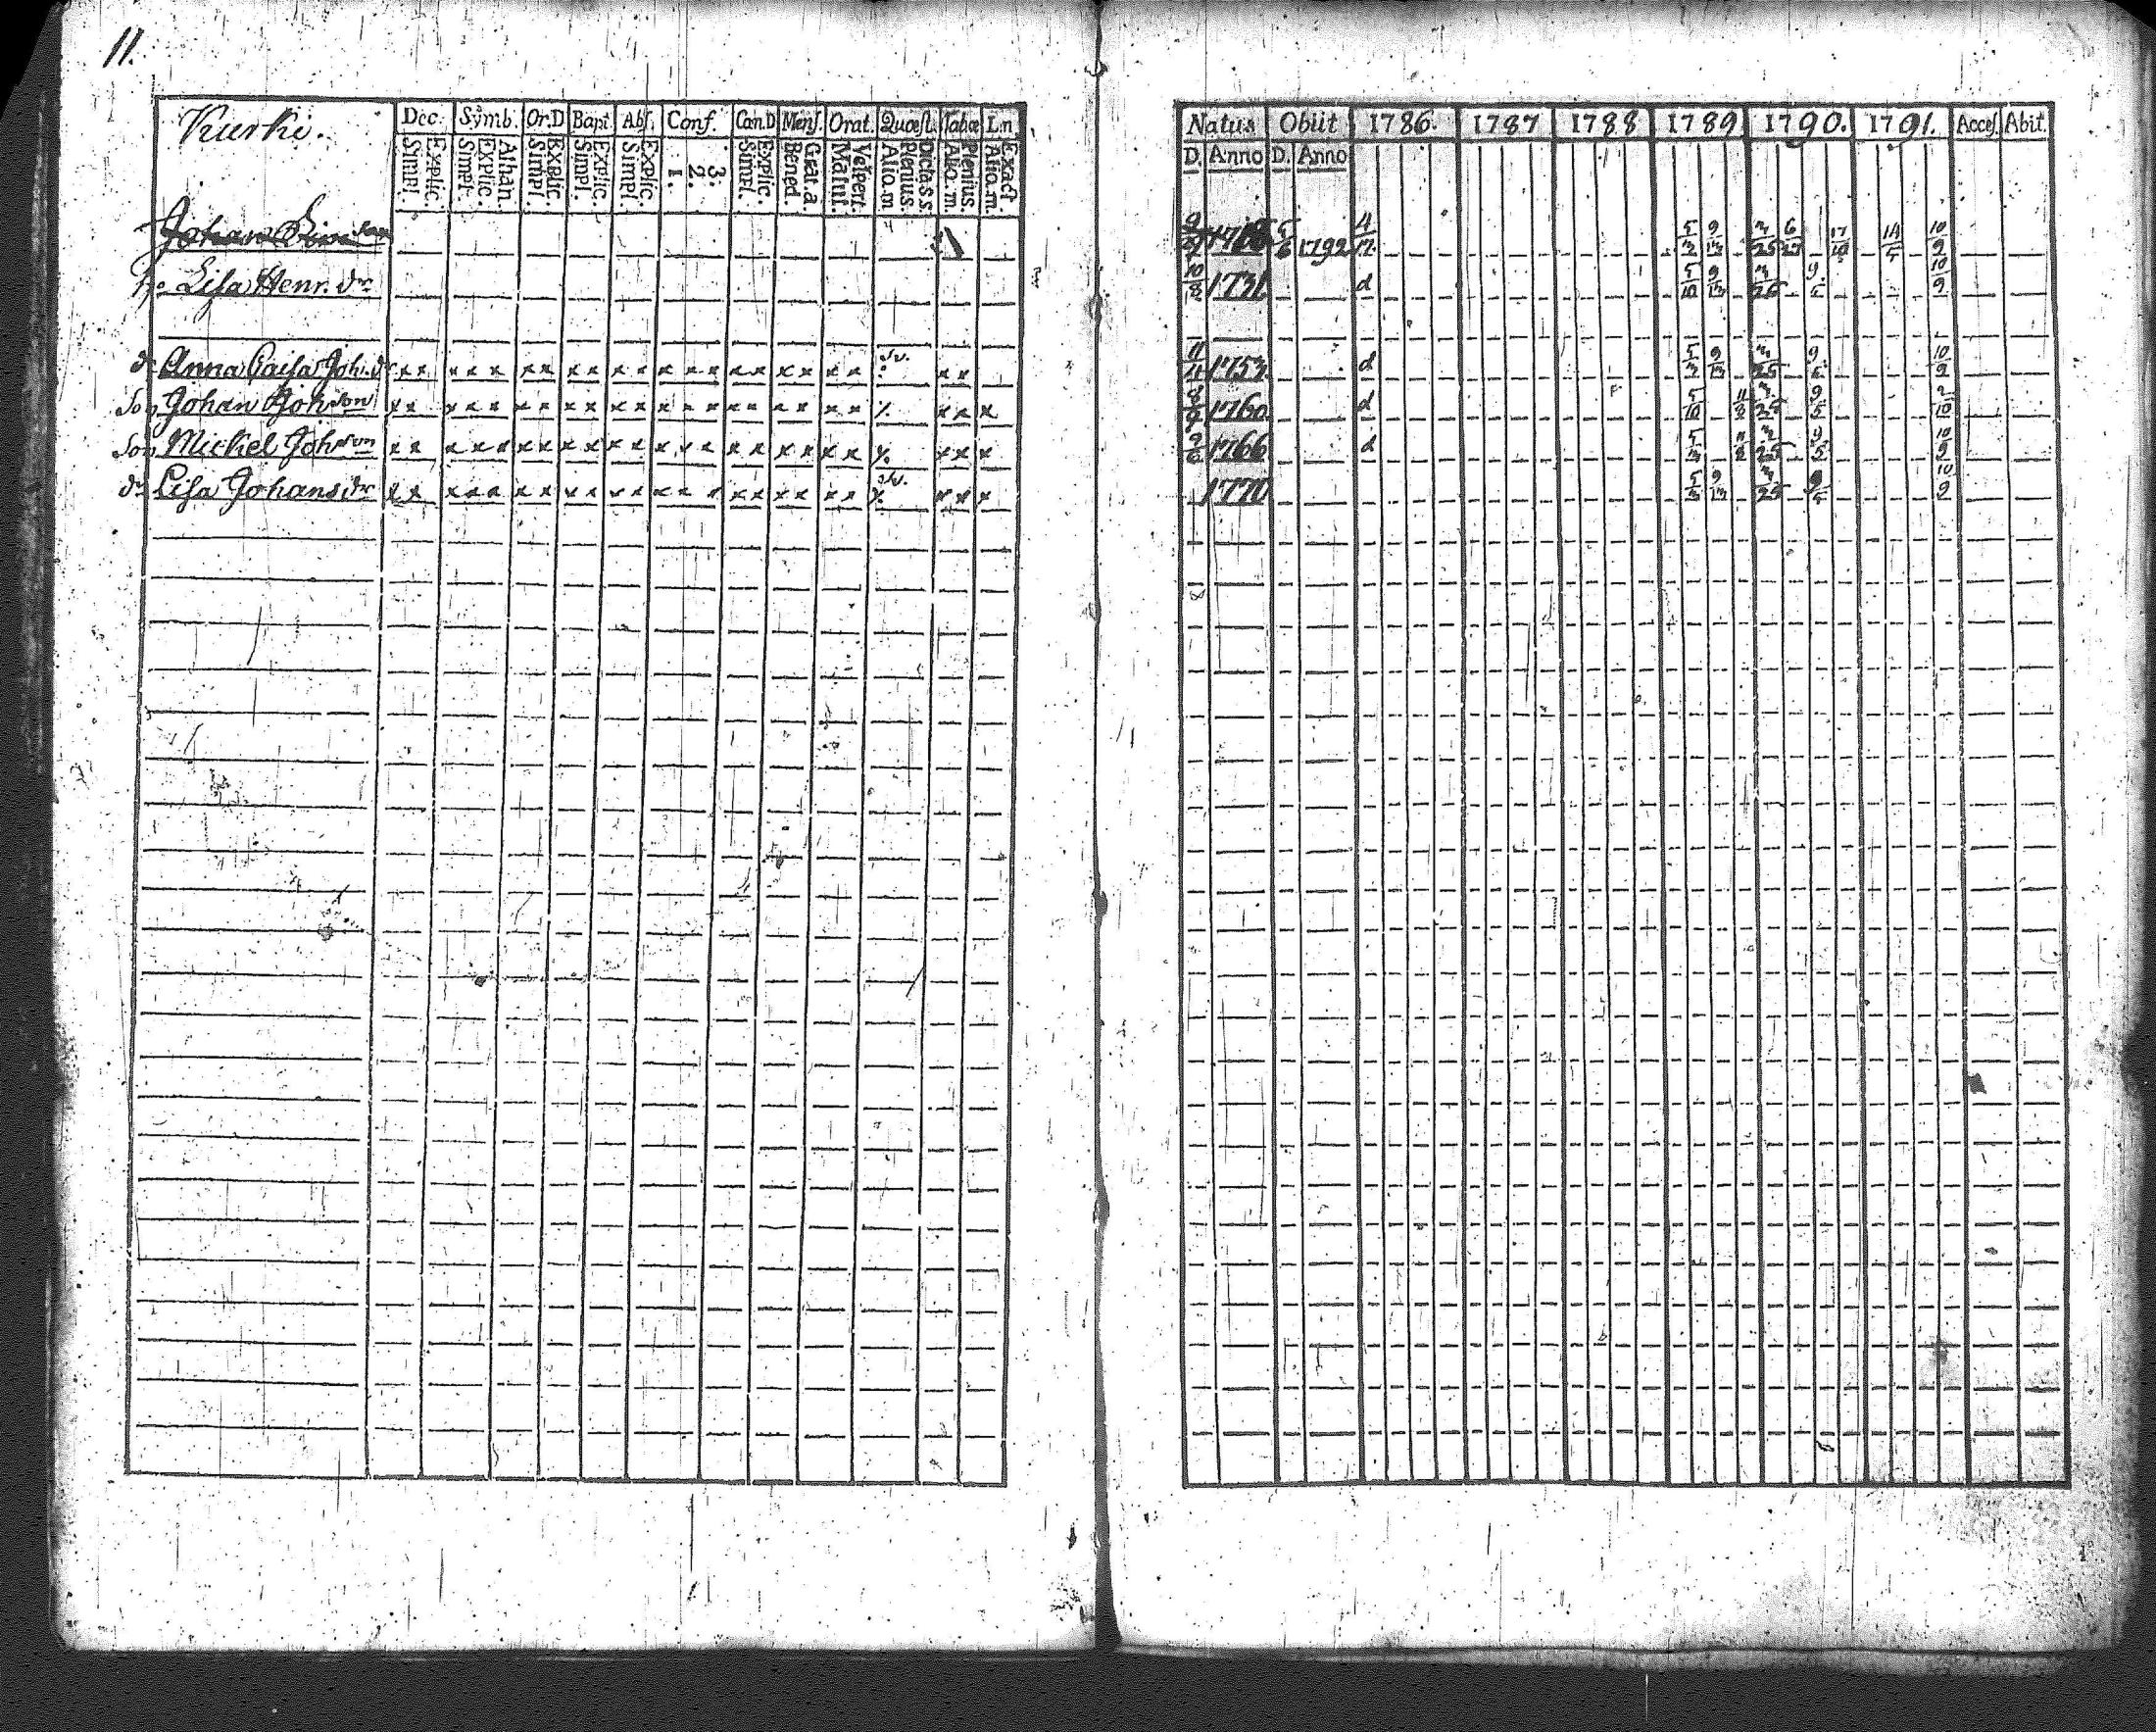 11.
Kurki.
Dec. Symb. Or.D Bapt. Abs. Conf. Cœn.D Mens. Orat. Quæst. Tabœ L.n
Explic. Simpl. Athan. Explic. Simpl. Explic. Simpl. Explic. Simpl. Explic. Simpl. 3. 2. 1. Explic. Simpl. Grat.a. Bened. Vespert. Matut. Dicta s.s. Plenius. Alio.m Plenius. Alio.m. Exact. Alio.m.
Johan
Lisa Henr. dr
dr Anna Caisa Joh. dr x x x x x x x x x x x x x x x x x x x x x x x
Son Johan Joh son x x x x x x x x x x x x x x x x x x x x ⁒ x x x
Son Mickel Joh son x x x x x x x x x x x x x x x x x x x x ⁒ x x x
dr Lisa Johans dr x x x x x x x x x x x x x x x x x x x x ⁒ x x x
Natus Obiit 1786. 1787 1788 1789 1790. 1791. Acces. Abit.
D. Anno D. Anno
5/6 1792 5/3 9/13 3/25 6/27 17/10 14/5 10/9
10/8 1731 d 5/10 9/13 3/25 9/5 10/9
11/11 1753 d 5/3 9/13 3/25 9/5 10/9
1760 d 5/10 11/8 3/25 9/5 2/10
1766 d 5/3 11/8 3/25 9/5 10/9
1770 5/3 9/13 3/25 9/5 10/9